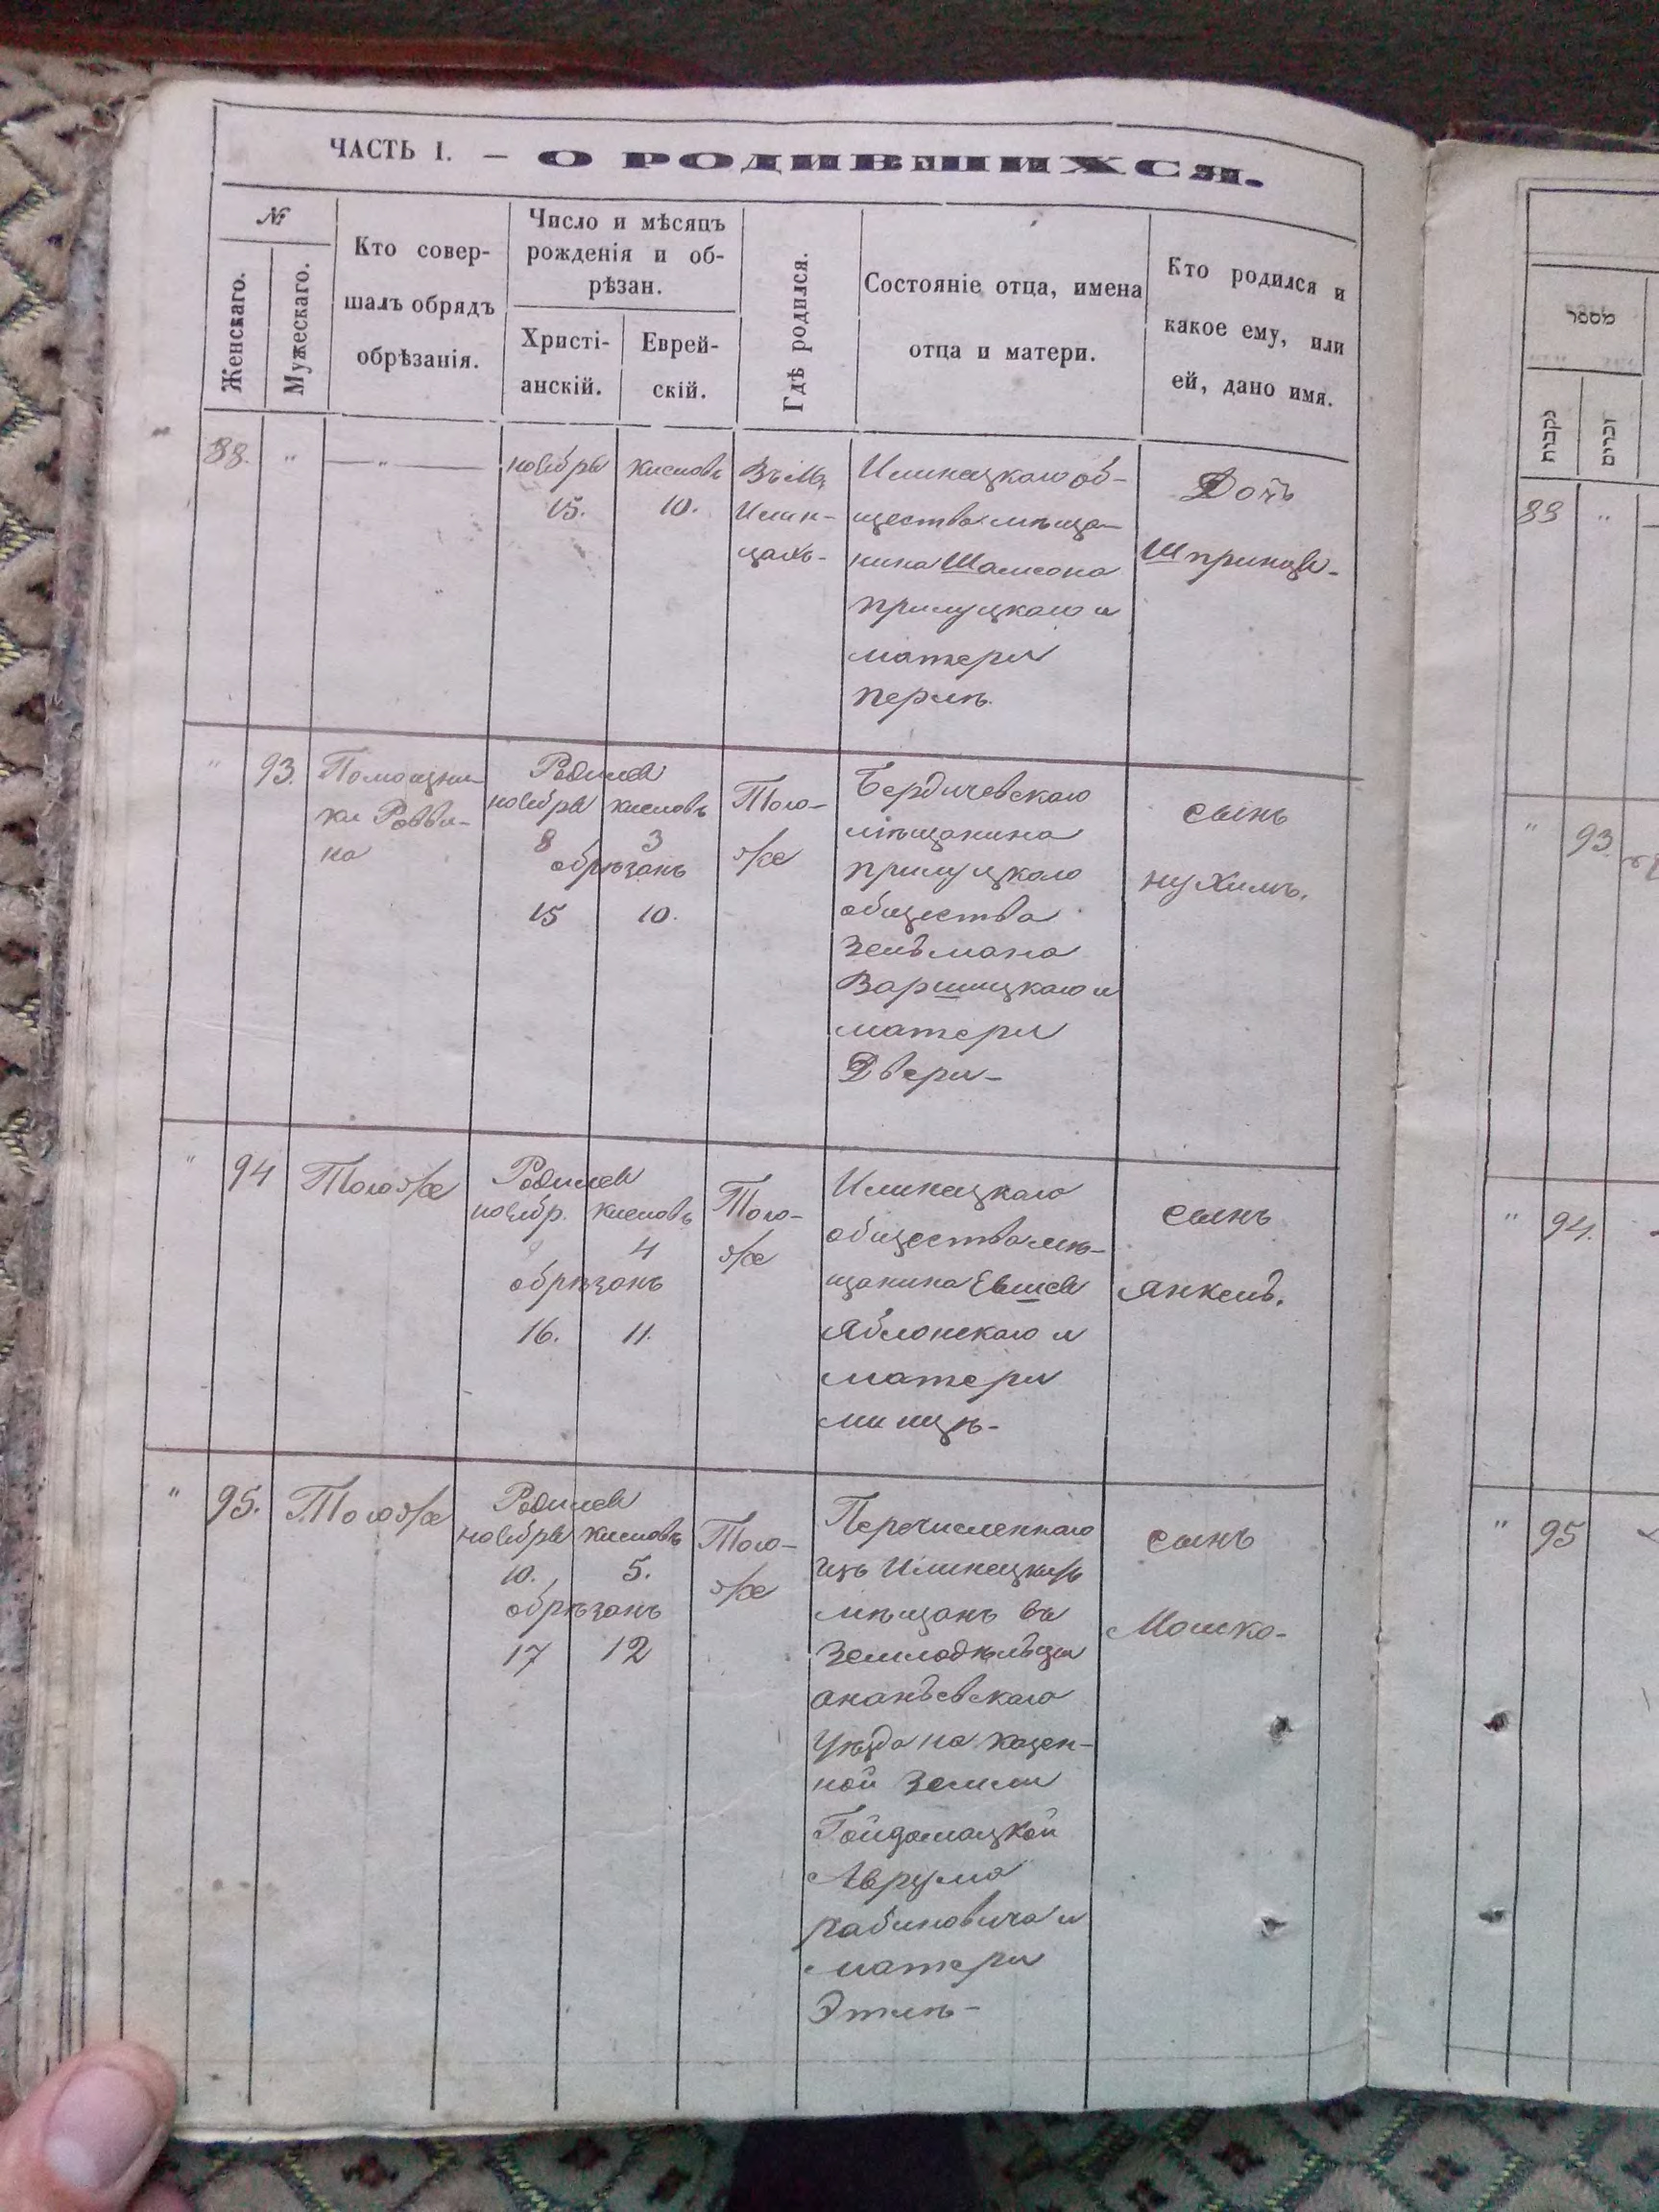 ЧАСТЬ I. — О РОДИВШИХСЯ.
№
Женскаго.
Мужескаго.
Кто совер-
шалъ обрядъ
обрѣзанія.
Число и мѣсяцъ
рожденія и об-
рѣзан.
Христі-
анскій.
Еврей-
скій.
Гдѣ родился.
Состояніе отца, имена
отца и матери.
Кто родился и
какое ему, или
ей, дано имя.
88.
"
— " —
ноября
15.
кислова
10.
Въ М.
Илин-
цахъ-
Илинецкаго об-
щества мѣща-
нина Шамсона
Прилуцкаго и
матери
Перлѣ.
Дочь
Шпринца-
"
93.
Помощни-
ка Равви-
на
Родился
ноября
8
кисловъ
3
обрѣзанъ
15
10.
Того-
же
Бердичевскаго
мѣщанина
прилуцкаго
общества
Зельмана
Варшицкаго и
матери
Двери-
сынъ
Нухимъ.
"
94
Того же
Родился
ноябр.
кисловъ
4
обрѣзанъ
16.
11.
Того-
же
Илинецкаго
общества мѣ-
щанина Евшея
Яблонскаго и
матери
сынъ
Янкель.
"
95.
Того же
Родился
ноября
10.
кисловъ
5.
обрѣзанъ
17
12
Того-
же
Перечисленнаго
изъ Илинецкихъ
мѣщанъ въ
Земледѣльцы
Ананьевскаго
Уѣзда на казен-
ной земли
Гайдамацкой
Аврума
Рабиновича и
матери
Этлѣ-
сынъ
Мошко-
מספר
נקבות
זכרים
88
"
"
93
"
94.
"
95